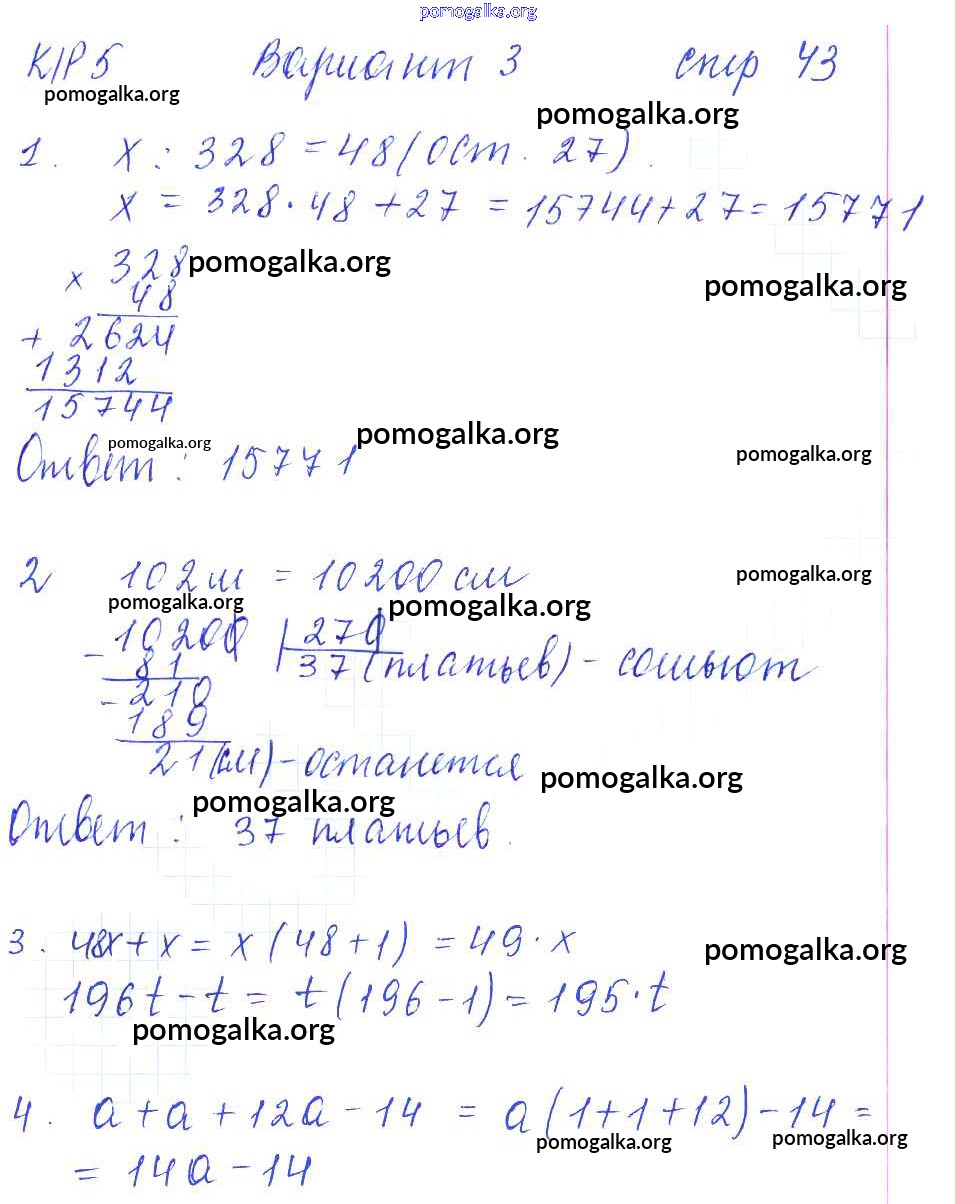 pomogalka.org
К/Р 5 Вариант 3 стр 43
pomogalka.org
pomogalka.org
1. x : 328 = 48 (ост. 27).
x = 328 · 48 + 27 = 15744 + 27 = 15771
x 328 pomogalka.org
48 pomogalka.org
+ 2624
1312
15744
Ответ: 15771
pomogalka.org pomogalka.org pomogalka.org
2 102 м = 10200 см
pomogalka.org pomogalka.org pomogalka.org
- 10200 | 270
81 37 (платьев) - сошьют
- 210
189
21 (см) - останется
pomogalka.org pomogalka.org
Ответ: 37 платьев.
3. 48x + x = x (48 + 1) = 49 · x
pomogalka.org
196t - t = t (196 - 1) = 195 · t
pomogalka.org
4. a + a + 12a - 14 = a (1 + 1 + 12) - 14 =
pomogalka.org pomogalka.org
= 14a - 14